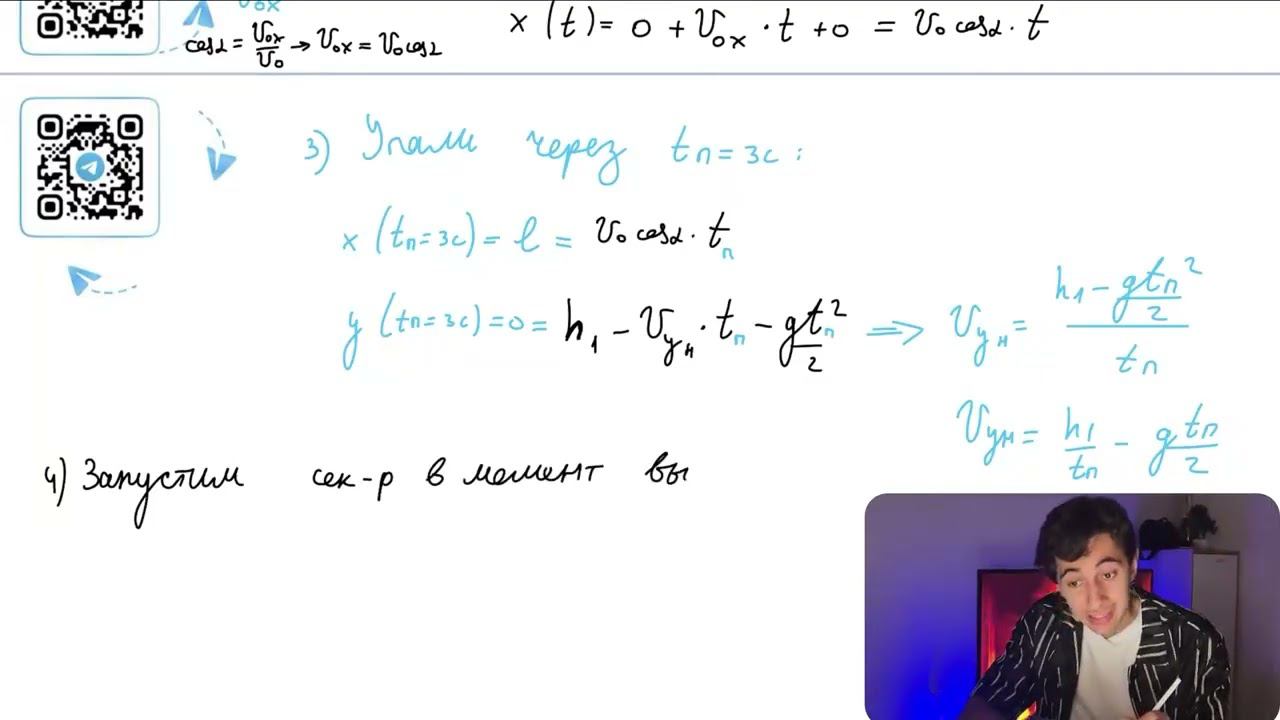 cosα = V₀ₓ/V₀ → V₀ₓ = V₀ cosα
x (t) = 0 + V₀ₓ · t + 0 = V₀ cosα · t
3) Упали через tп = 3с :
x (tп = 3с) = l = V₀ cosα · tп
y (tп = 3с) = 0 = h₁ − Vyн · tп − gtп²/2 ⇒ Vyн = (h₁ − gtп²/2)/tп
Vyн = h₁/tп − g tп/2
4) Запустим сек-р в момент вы